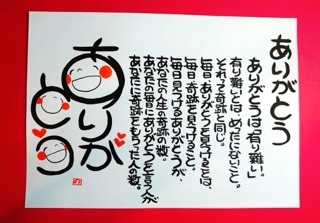 ありがとう
ありがとうは「有り難い」。
有り難いとは「めったにないこと」。
それって奇跡と同じ。
毎日、ありがとうを見つけることは、
毎日、奇跡を見つけること。
毎日見つけるありがとうが、
あなたの人生の奇跡の数。
あなたの毎日にありがとうを言う人が
あなたに奇跡をもらった人の数。
ありが
とう